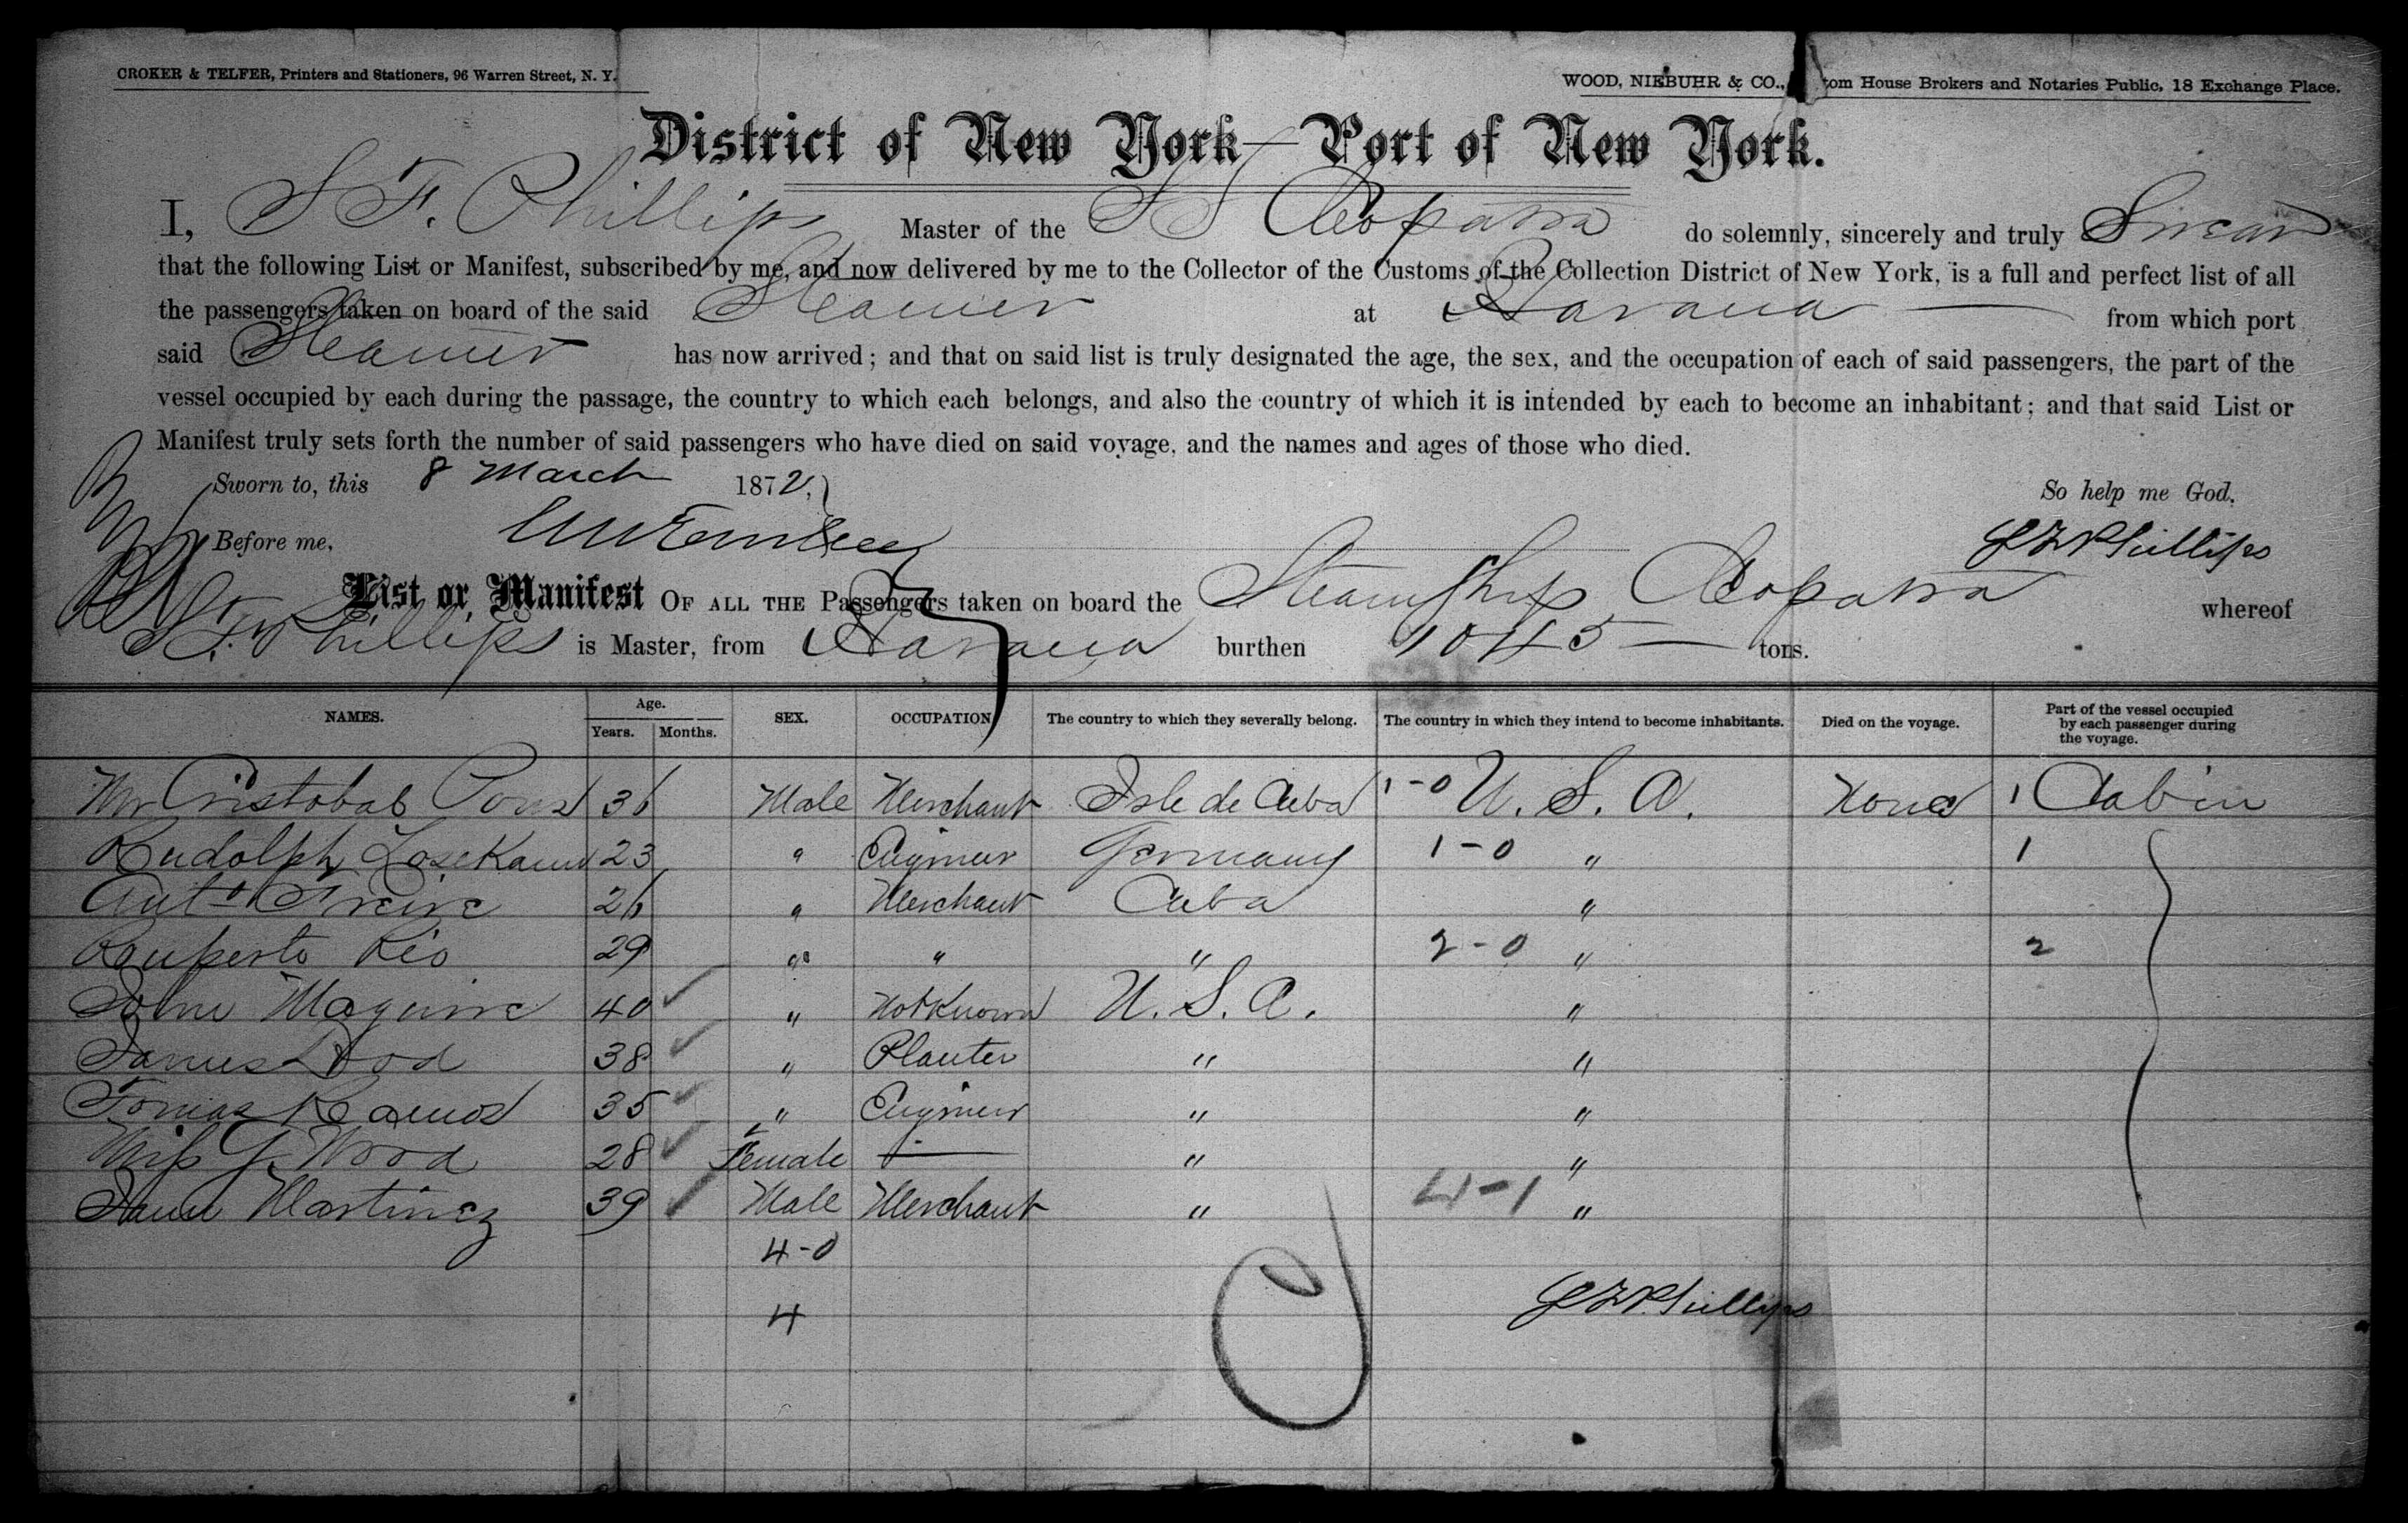 CROKER & TELFER, Printers and Stationers, 96 Warren Street, N. Y.
WOOD, NIEBUHR & CO., tom House Brokers and Notaries Public, 18 Exchange Place.
District of New York—Port of New York.
I, S. F. Phillips Master of the SS Cleopatra do solemnly, sincerely and truly Swear
that the following List or Manifest, subscribed by me, and now delivered by me to the Collector of the Customs of the Collection District of New York, is a full and perfect list of all
the passengers taken on board of the said Steamer at Havana from which port
said Steamer has now arrived; and that on said list is truly designated the age, the sex, and the occupation of each of said passengers, the part of the
vessel occupied by each during the passage, the country to which each belongs, and also the country of which it is intended by each to become an inhabitant; and that said List or
Manifest truly sets forth the number of said passengers who have died on said voyage, and the names and ages of those who died.
Sworn to, this 8 March 1872, So help me God.
Before me, SFPhillips
List or Manifest OF ALL THE Passengers taken on board the Steamship Cleopatra whereof
S. F. Phillips is Master, from Havana burthen 1045 tons.
NAMES. Age. Years. Months. SEX. OCCUPATION The country to which they severally belong. The country in which they intend to become inhabitants. Died on the voyage. Part of the vessel occupied by each passenger during the voyage.
Mr Cristobal Pons 36 Male Merchant Isle de Cuba 1-0 U. S. A. None 1 Cabin
Rudolph 23 " Engineer Germany 1-0 " 1
Anto Freire 26 " Merchant Cuba "
Ruperto Rio 29 " " " 2-0 " 2
John Maguire 40 " Not Known U. S. A. "
James Dod 38 " Planter " "
Tomas Ramos 35 " Engineer " "
Miss G. Wood 28 Female — " "
Juan Martinez 39 Male Merchant " 4-1 "
4-0
SFPhillips
4